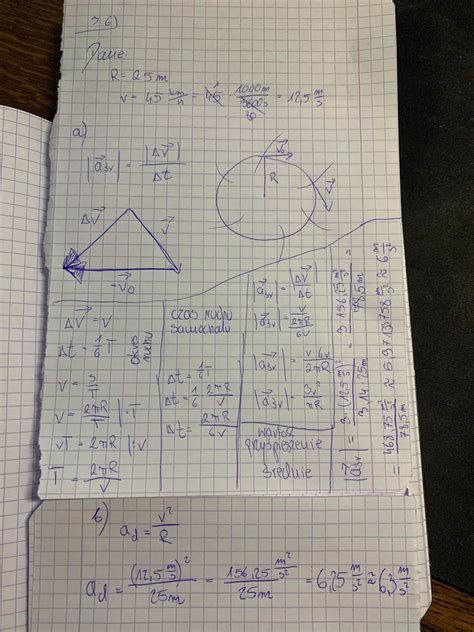 3.6)
Dane:
R = 25m
v = 45 km/h = 45 1000m/3600s = 12,5 m/s
a)
|a⃗śr| = |Δv⃗|/Δt
v⃗₀
v⃗
R
Δv⃗
v⃗
-v⃗₀
Δv⃗ = v
Δt = 1/6 T
okres ruchu
v = s/T
v = 2πR/T |·T
vT = 2πR |:v
T = 2πR/v
czas ruchu
samochodu
Δt = 1/6 T
Δt = 1/6 2πR/v
Δt = 2πR/6v
|a⃗śr| = |Δv⃗|/Δt
|a⃗śr| = v/(2πR/6v)
|a⃗śr| = v·6v/2πR
|a⃗śr| = 3v²/πR
wartość
przyspieszenie
średnie
|a⃗śr| = 3·(12,5 m/s)²/3,14·25m = 3·156,25 m²/s²/78,5m =
= 468,75 m²/s²/78,5m ≈ 5,97133758 m/s² ≈ 6 m/s²
b)
a_d = v²/R
a_d = (12,5 m/s)²/25m = 156,25 m²/s²/25m = 6,25 m/s² ≈ 6,3 m/s²